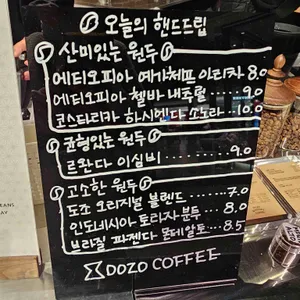 오늘의 핸드드립
산미있는 원두
에디오피아 예가체프 아리차 8.0
에디오피아 첼바 내추럴 ······ 9.0
코스타리카 하시엔다 소노라 ·· 10.0
균형있는 원두
르완다 이심비 ············ 9.0
고소한 원두
도조 오리지널 블렌드 ······ 7.0
인도네시아 토라자 분두 ···· 8.0
브라질 파젠다 몬테알토 ·· 8.5
DOZO COFFEE